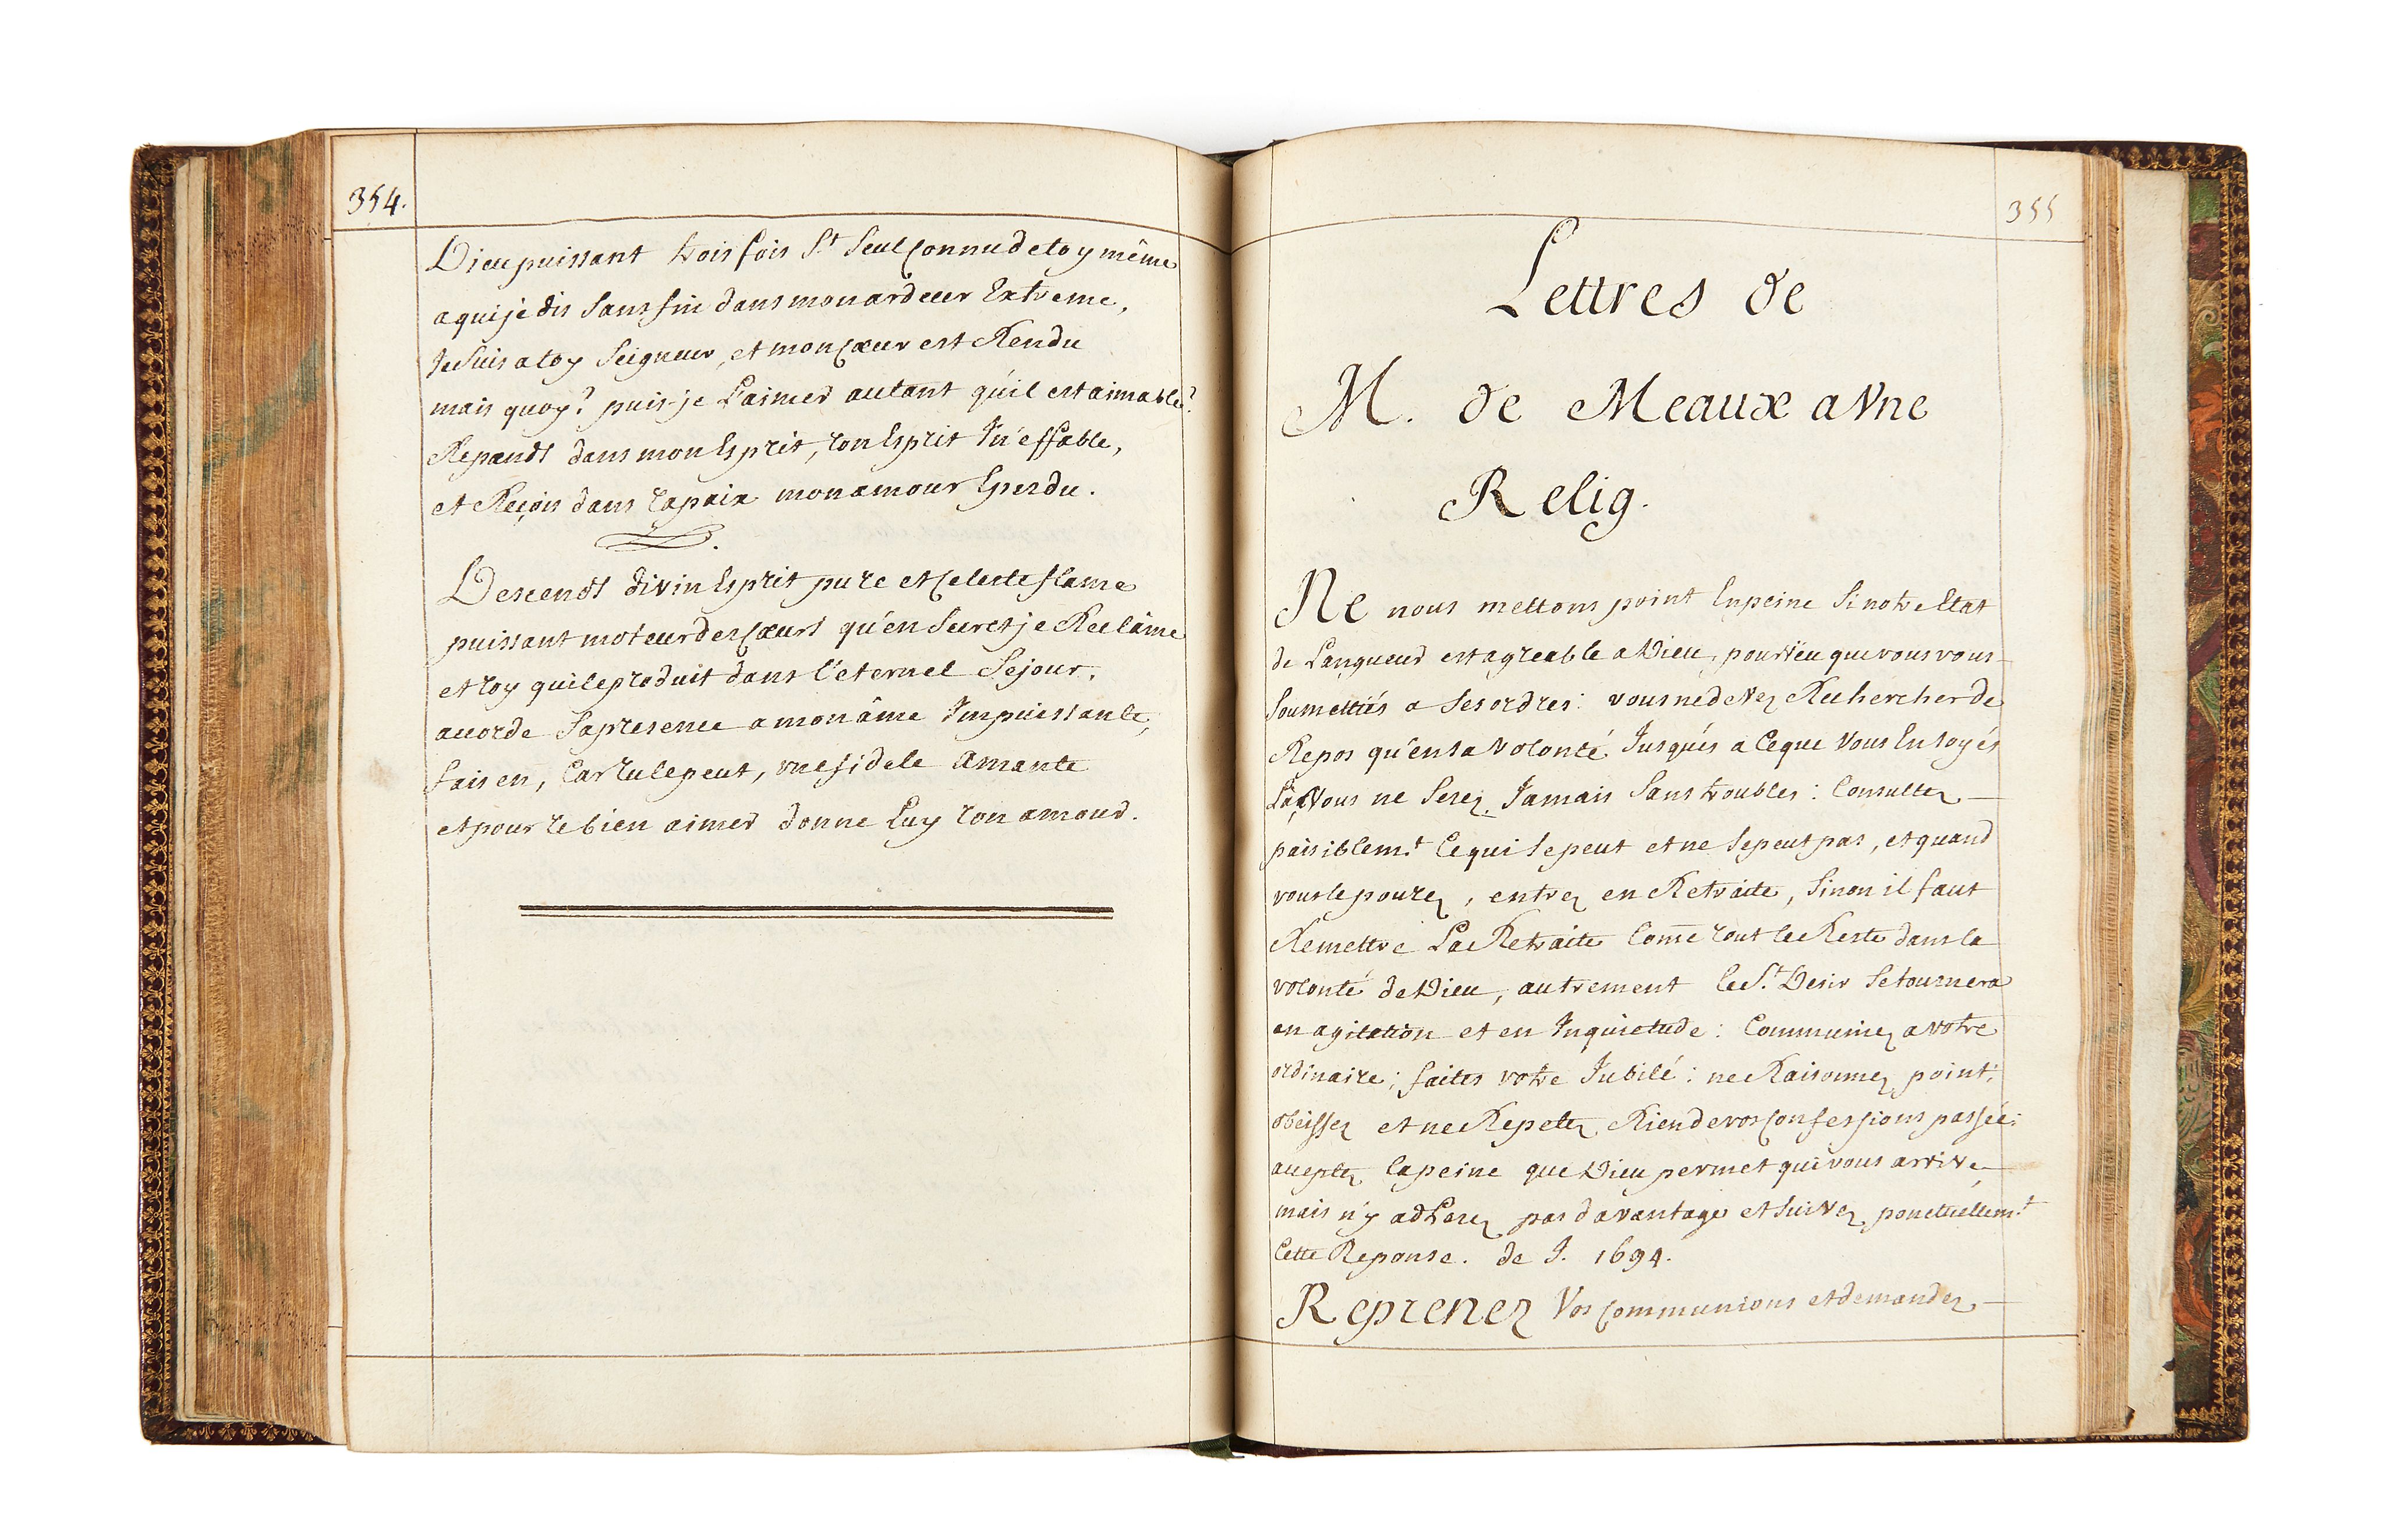 354.
Dieu puissant trois fois S.t seul connu de toy même
a qui je dis sans fin dans mon ardeur Extreme,
Je suis a toy Seigneur, et mon cœur est Rendu
mais quoy? puis-je L'aimer autant qu'il est aimable?
Repands dans mon Esprit, ton Esprit In'effable,
et Reçois dans ta paix mon amour Eperdu.
Descends divin Esprit pure et Celeste flame
puissant moteur des Cœurs qu'en secret je Reclâme
et toy qui le produit dans l'eternel Sejour,
accorde Sa presence a mon âme Impuissante,
fais en, Car tu le peut, une fidele Amante
et pour te bien aimer donne Luy ton amour.
355
Lettres de
M. de Meaux a Vne
Relig.
Ne nous mettons point En peine Si notre Etat
de Langueur est agreable a Dieu, pourvëu que vous vous
Soumettiés a Ses ordres: vous ne devez Rechercher de
Repos qu'en sa Volonté Jusqu'és a Ceque Vous En soyés
Là, Vous ne Serez Jamais Sans troubles: Consultez
paisiblem.t Ce qui Se peut et ne Se peut pas, et quand
vous le pourez, entrez en Retraite, Sinon il faut
Remettre La Retraite Com̄e tout le Reste dans la
volonté de Dieu, autrement Le S.t Desir Se tournera
en agitation et en Inquietude: Communiez a votre
ordinaire; faites votre Jubilé: ne Raisonnez point:
obeissez et ne Repetez Rien de vos Confessions passée:
acceptez La peine que Dieu permet qui vous arrive,
mais n'y adherez pas davantage et Suivez ponctuellem.t
Cette Reponse. de J. 1694.
Reprenez Vos Communions et demandez